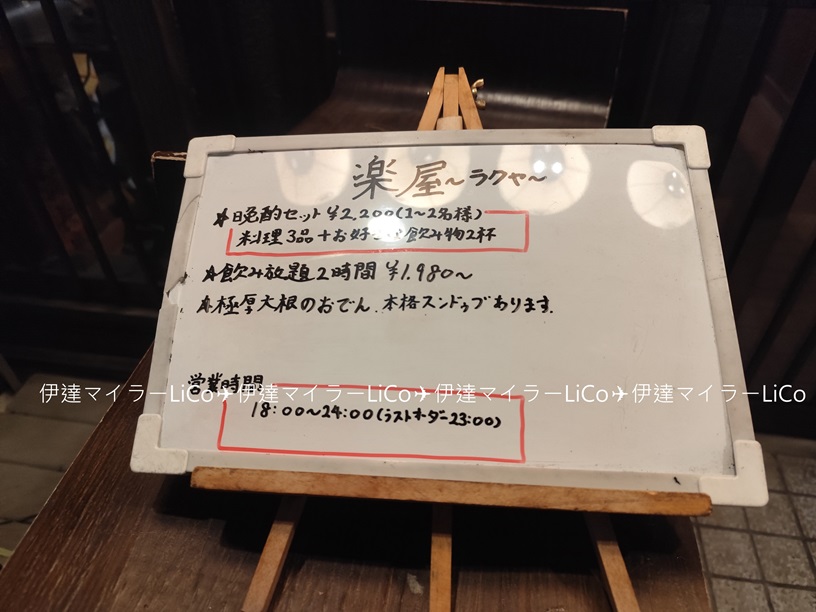 楽屋～ラクヤ～
★晩酌セット ¥2,200(1～2名様)
料理3品+お好 飲み物2杯
★飲み放題2時間 ¥1,980～
★極厚大根のおでん、本格スンドゥブあります。
営業時間
伊達マイラーLiCo✈伊達マイラーLiCo✈伊達マイラーLiCo✈伊達マイラーLiCo
18:00～24:00(ラストオーダー23:00)